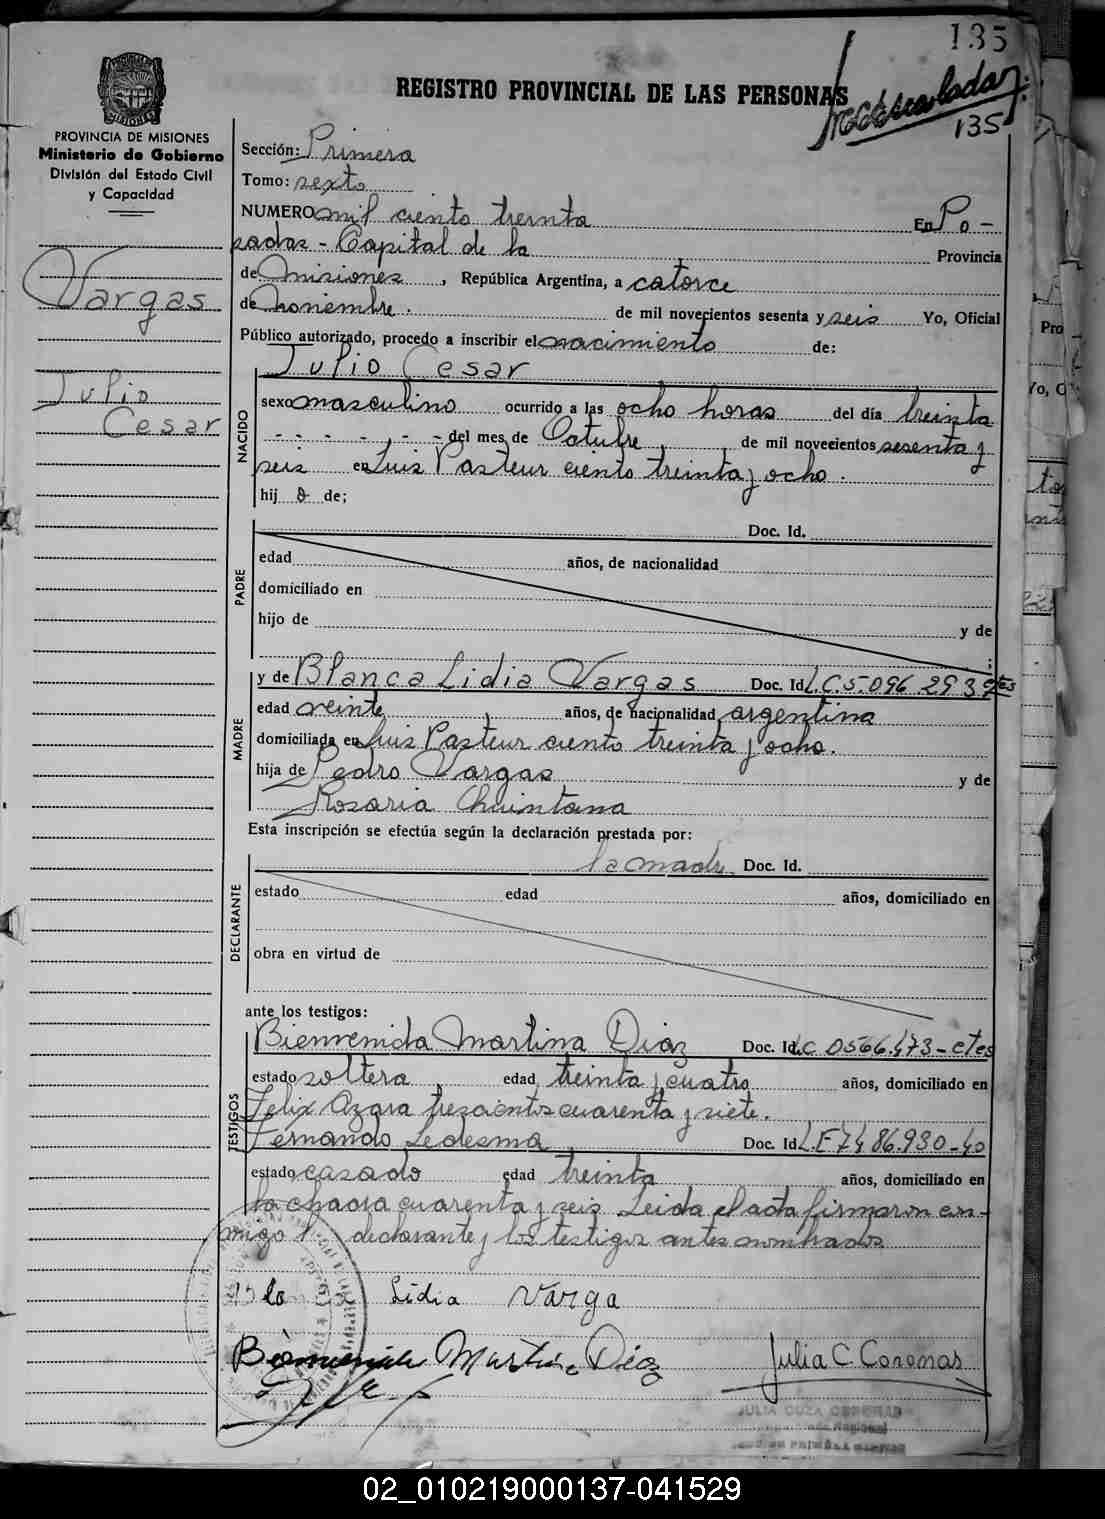 135
REGISTRO PROVINCIAL DE LAS PERSONAS
135
PROVINCIA DE MISIONES
Ministerio de Gobierno
División del Estado Civil
y Capacidad
Vargas
Julio
Cesar
Sección: Primera
Tomo: sexto
NUMERO mil ciento treinta En Po-
sadas - Capital de la Provincia
de Misiones, República Argentina, a catorce
de noviembre. de mil novecientos sesenta y seis Yo, Oficial
Público autorizado, procedo a inscribir el nacimiento de:
Julio Cesar
NACIDO
sexo masculino ocurrido a las ocho horas del día treinta
- - - - , - - del mes de Octubre de mil novecientos sesenta y
seis en Luis Pasteur ciento treinta y ocho.
hij o de;
PADRE
Doc. Id.
edad años, de nacionalidad
domiciliado en
hijo de y de
;
MADRE
y de Blanca Lidia Vargas Doc. Id L.C. 5.096.293 Ctes
edad veinte años, de nacionalidad argentina
domiciliada en Luis Pasteur ciento treinta y ocho.
hija de Pedro Vargas y de
Rosaria Chuintana
Esta inscripción se efectúa según la declaración prestada por:
DECLARANTE
la madre Doc. Id.
estado edad años, domiciliado en
obra en virtud de
ante los testigos:
TESTIGOS
Bienvenida Martina Diaz Doc. Id. L.C. 0566.473-Ctes
estado soltera, edad treinta y cuatro años, domiciliado en
Felix Azara trescientos cuarenta y siete.
Fernando Ledesma Doc. Id L.E 7486.930-40
estado casado edad treinta años, domiciliado en
la chacra cuarenta y seis Leida el acta firmaron con-
migo l declarante y los testigos antes nombrados
Lidia Varga
Bienvenida Martina Diaz
Julia C. Coronas
02_010219000137-041529